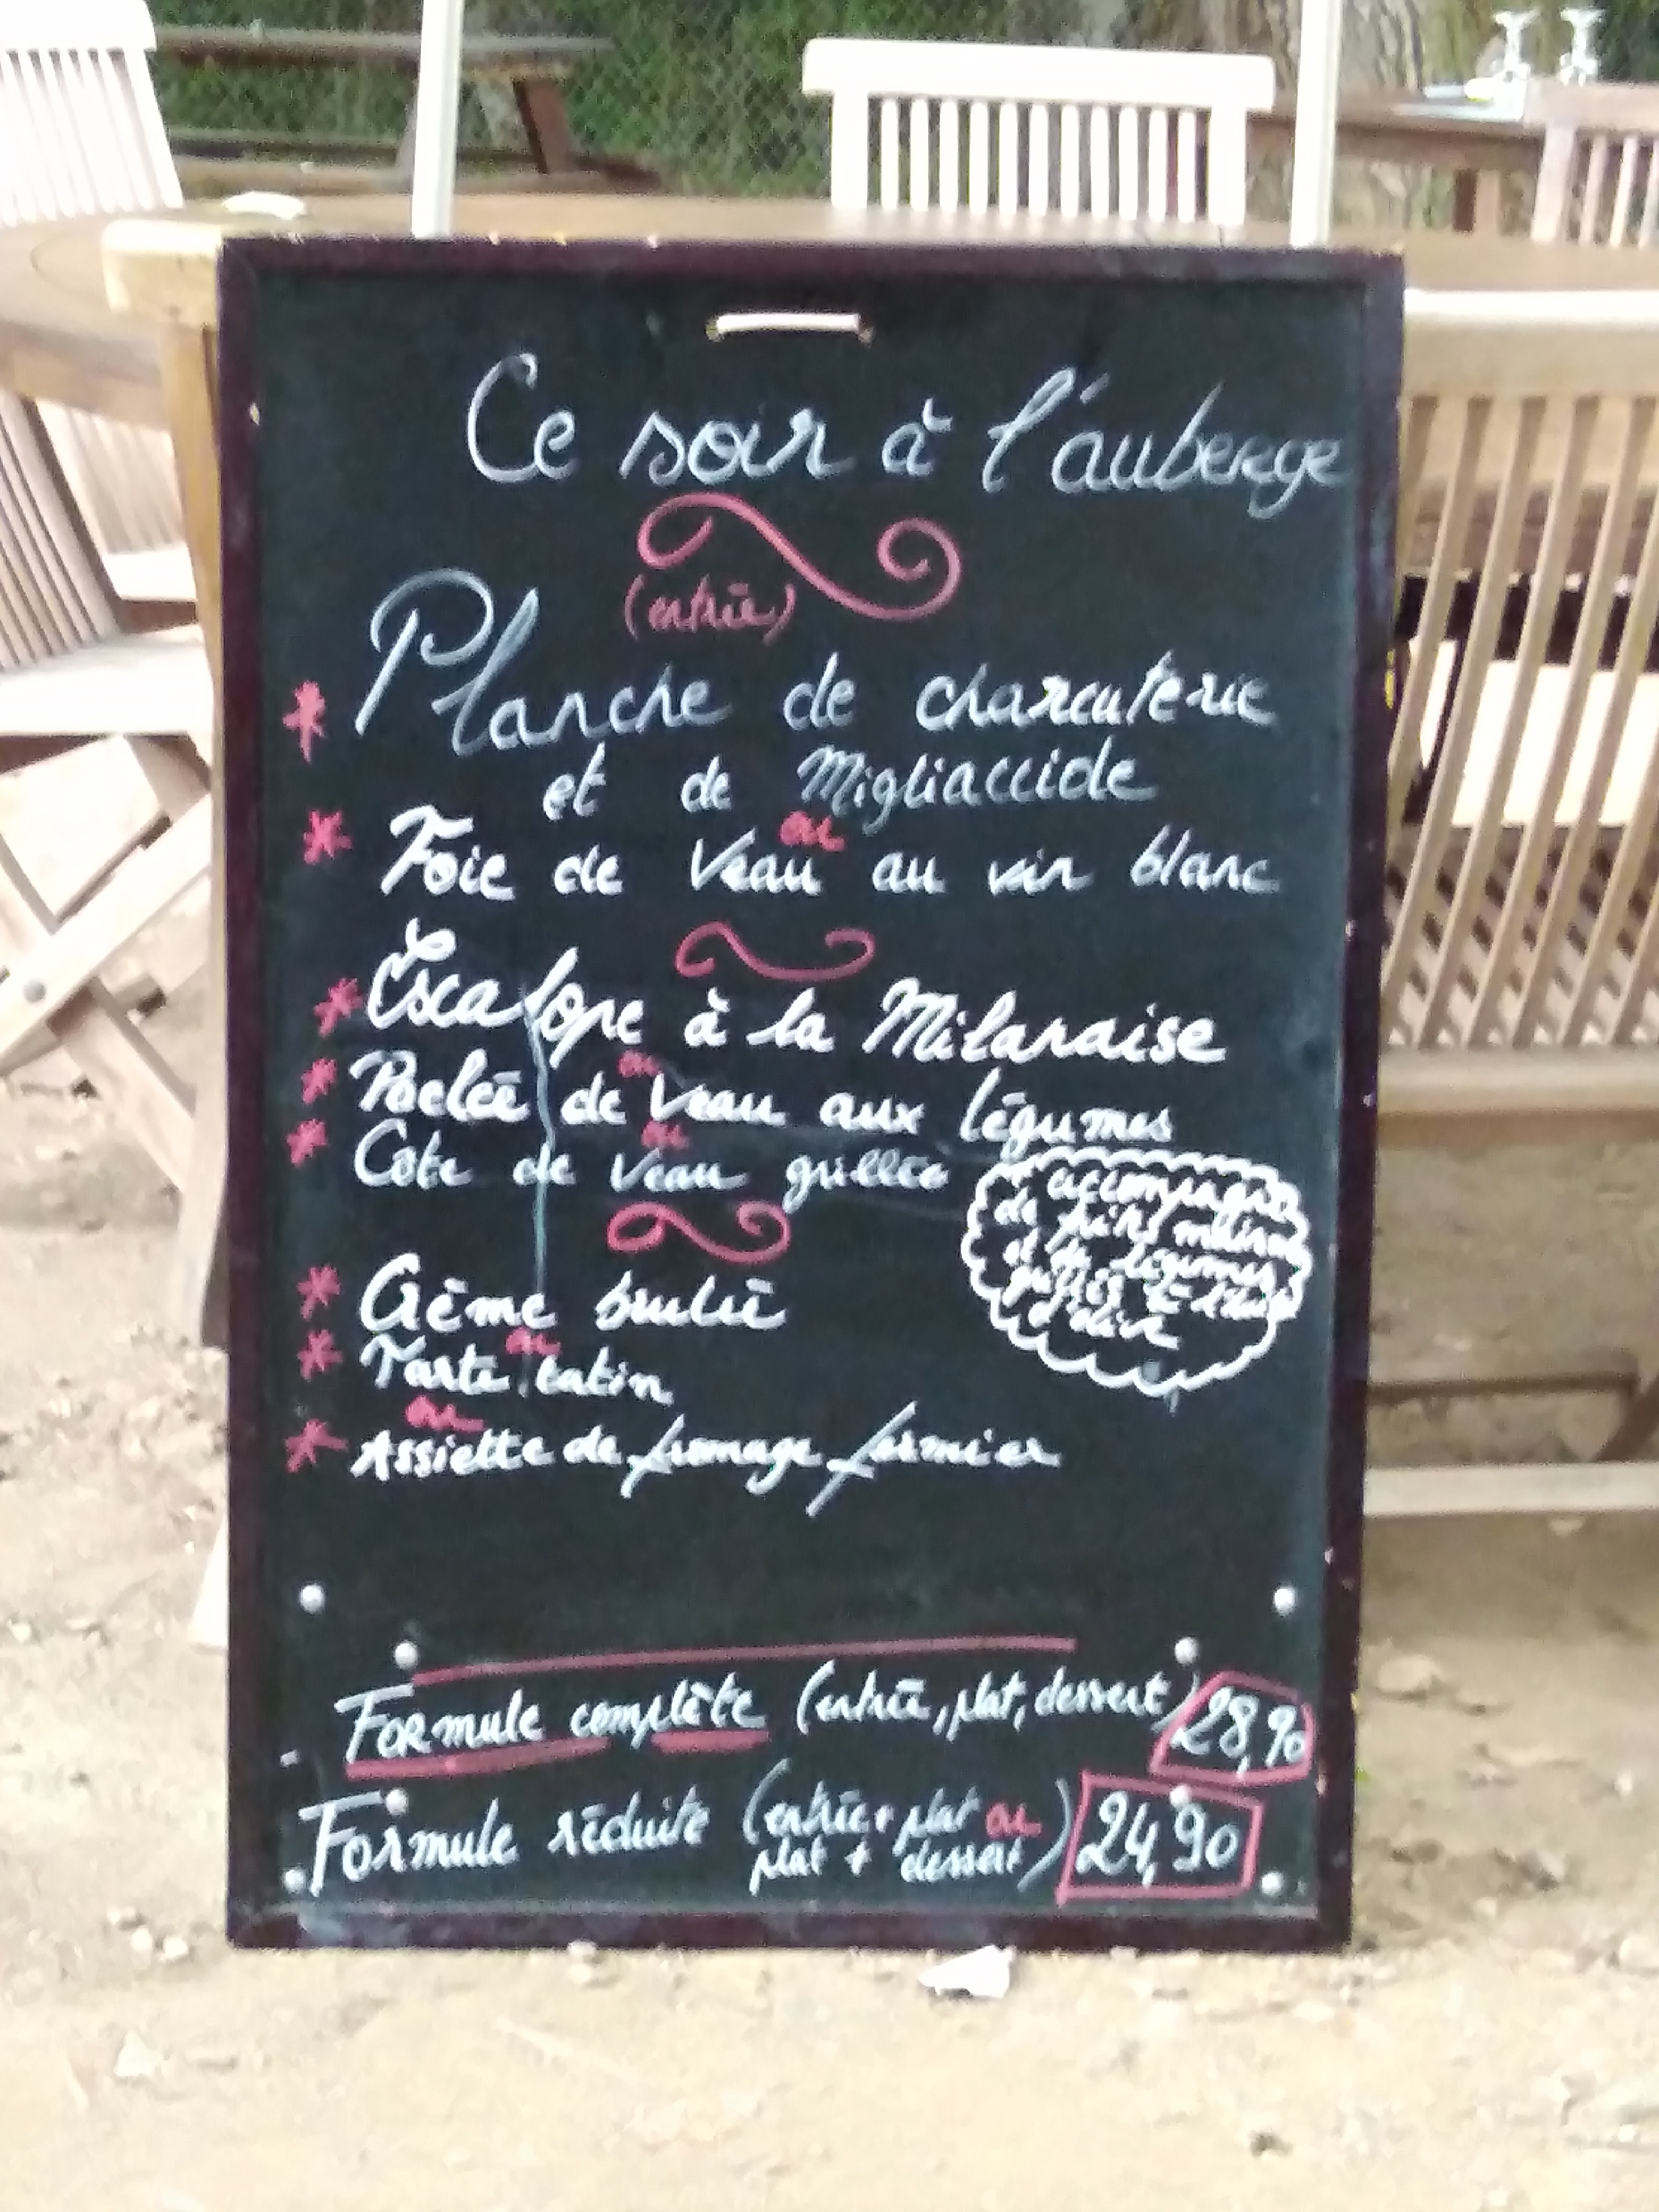 Ce soir à l'auberge
(entrée)
* Planche de charcuterie
et de Migliaccide
ou
* Foie de Veau au vin blanc
* Escalope à la Milanaise
ou
* Poelée de Veau aux légumes
ou
* Côte de Veau grillée
accompagné
de frites maison
et de légumes
grillés à l'huile
d'olive
* Crème brulée
ou
* Tarte tatin
ou
* Assiette de fromage fermier
Formule complète (entrée, plat, dessert) 28,90
Formule réduite (entrée + plat ou
plat + dessert) 24,90